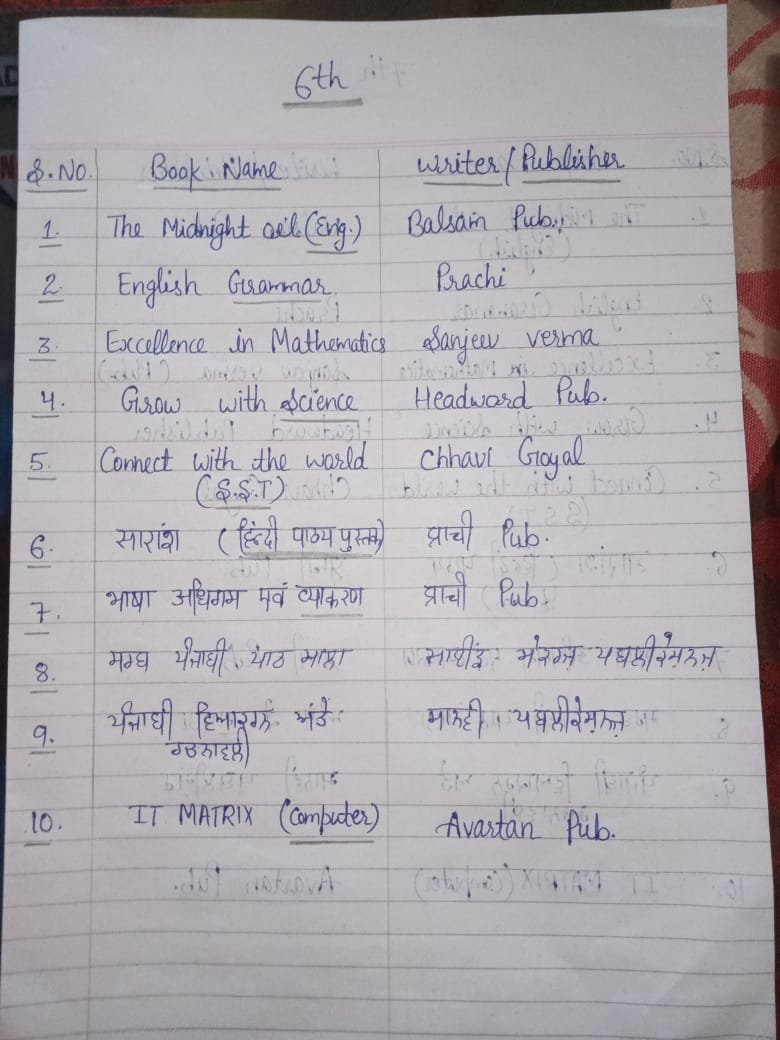 6th
S.No. Book Name Writer/Publisher
1. The Midnight oil (Eng.) Balsain Pub.
2. English Grammar Prachi
3. Excellence in Mathematics Sanjeev verma
4. Grow with Science Headword Pub.
5. Connect with the world Chhavi Goyal
(S.S.T)
6. सारांश (हिंदी पाठ्य पुस्तक) प्राची Pub.
7. भाषा अधिगम एवं व्याकरण प्राची Pub.
8. ਪੰਜਾਬੀ ਪਾਠ ਮਾਲਾ ਪਬਲੀਕੇਸ਼ਨਜ਼
9. ਪੰਜਾਬੀ ਵਿਆਕਰਨ ਅਤੇ ਪਬਲੀਕੇਸ਼ਨਜ਼
10. IT MATRIX (Computer) Avartan Pub.